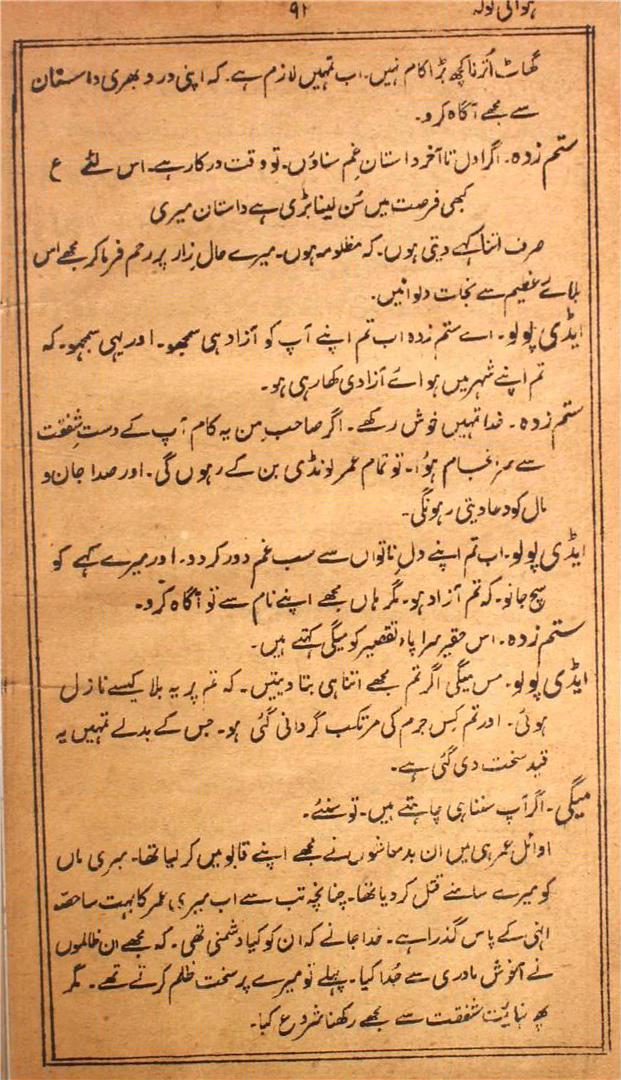 ہوائی ٹولہ ۹۲
گھاٹ اُترنا کچھ بڑا کام نہیں۔ اب تمہیں لازم ہے۔ کہ اپنی درد بھری داستان
سے مجھے آگاہ کرو۔
ستم زدہ۔ اگر اول تا آخر داستانِ غم سناؤں۔ تو وقت درکار ہے۔ اس لئے ع
کبھی فرصت میں سُن لینا بڑی ہے داستان میری
صرف اتنا کہے دیتی ہوں۔ کہ مظلومہ ہوں۔ میرے حالِ زار پر رحم فرما کر مجھے اس
بلائے عظیم سے نجات دلوائیں۔
ایڈی پولو۔ اے ستم زدہ اب تم اپنے آپ کو آزاد ہی سمجھو۔ اور یہی سمجھو۔ کہ
تم اپنے شہر میں ہوائے آزادی کھا رہی ہو۔
ستم زدہ۔ خدا تمہیں خوش رکھے۔ اگر صاحبِ من یہ کام آپ کے دستِ شفقت
سے سرانجام ہؤا۔ تو تمام عمر لونڈی بن کے رہوں گی۔ اور صدا جان و
مال کو دعا دیتی رہونگی۔
ایڈی پولو۔ اب تم اپنے دلِ ناتواں سے سب غم دور کر دو۔ اور میرے کہے کو
سچ جانو۔ کہ تم آزاد ہو۔ مگر ہاں مجھے اپنے نام سے تو آگاہ کرو۔
ستم زدہ۔ اس حقیر سراپاء تقصیر کو میگی کہتے ہیں۔
ایڈی پولو۔ مس میگی اگر تم مجھے اتنا ہی بتا دیتیں۔ کہ تم پر یہ بلا کیسے نازل
ہوئی۔ اور تم کِس جرم کی مرتکب گردانی گئی ہو۔ جس کے بدلے تمہیں یہ
قید سخت دی گئی ہے۔
میگی۔ اگر آپ سننا ہی چاہتے ہیں۔ تو سنئے۔
اوائل عمر ہی میں ان بدمعاشوں نے مجھے اپنے قابو میں کر لیا تھا۔ میری ماں
کو میرے سامنے قتل کر دیا تھا۔ چنانچہ تب سے اب میری عمر کا بہت سا حصّہ
انہی کے پاس گذرا ہے۔ خدا جانے کہ ان کو کیا دشمنی تھی۔ کہ مجھے ان ظالموں
نے آغوش مادری سے جُدا کیا۔ پہلے تو میرے پر سخت ظلم کرتے تھے۔ مگر
پھر نہایت شفقت سے مجھے رکھنا شروع کیا۔